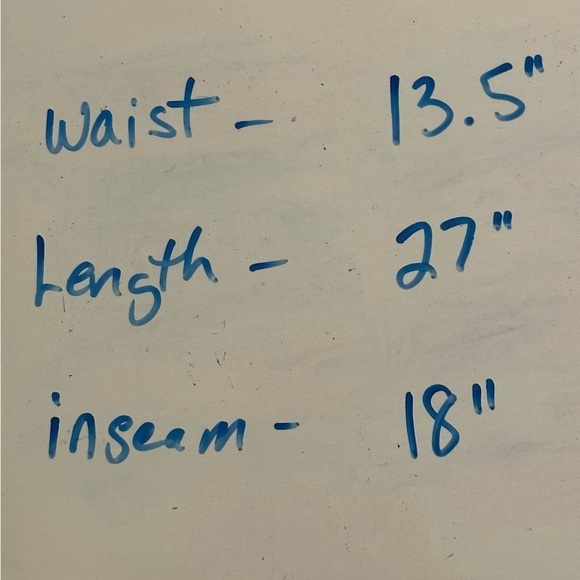 Waist - 13.5"
Length - 27"
inseam - 18"